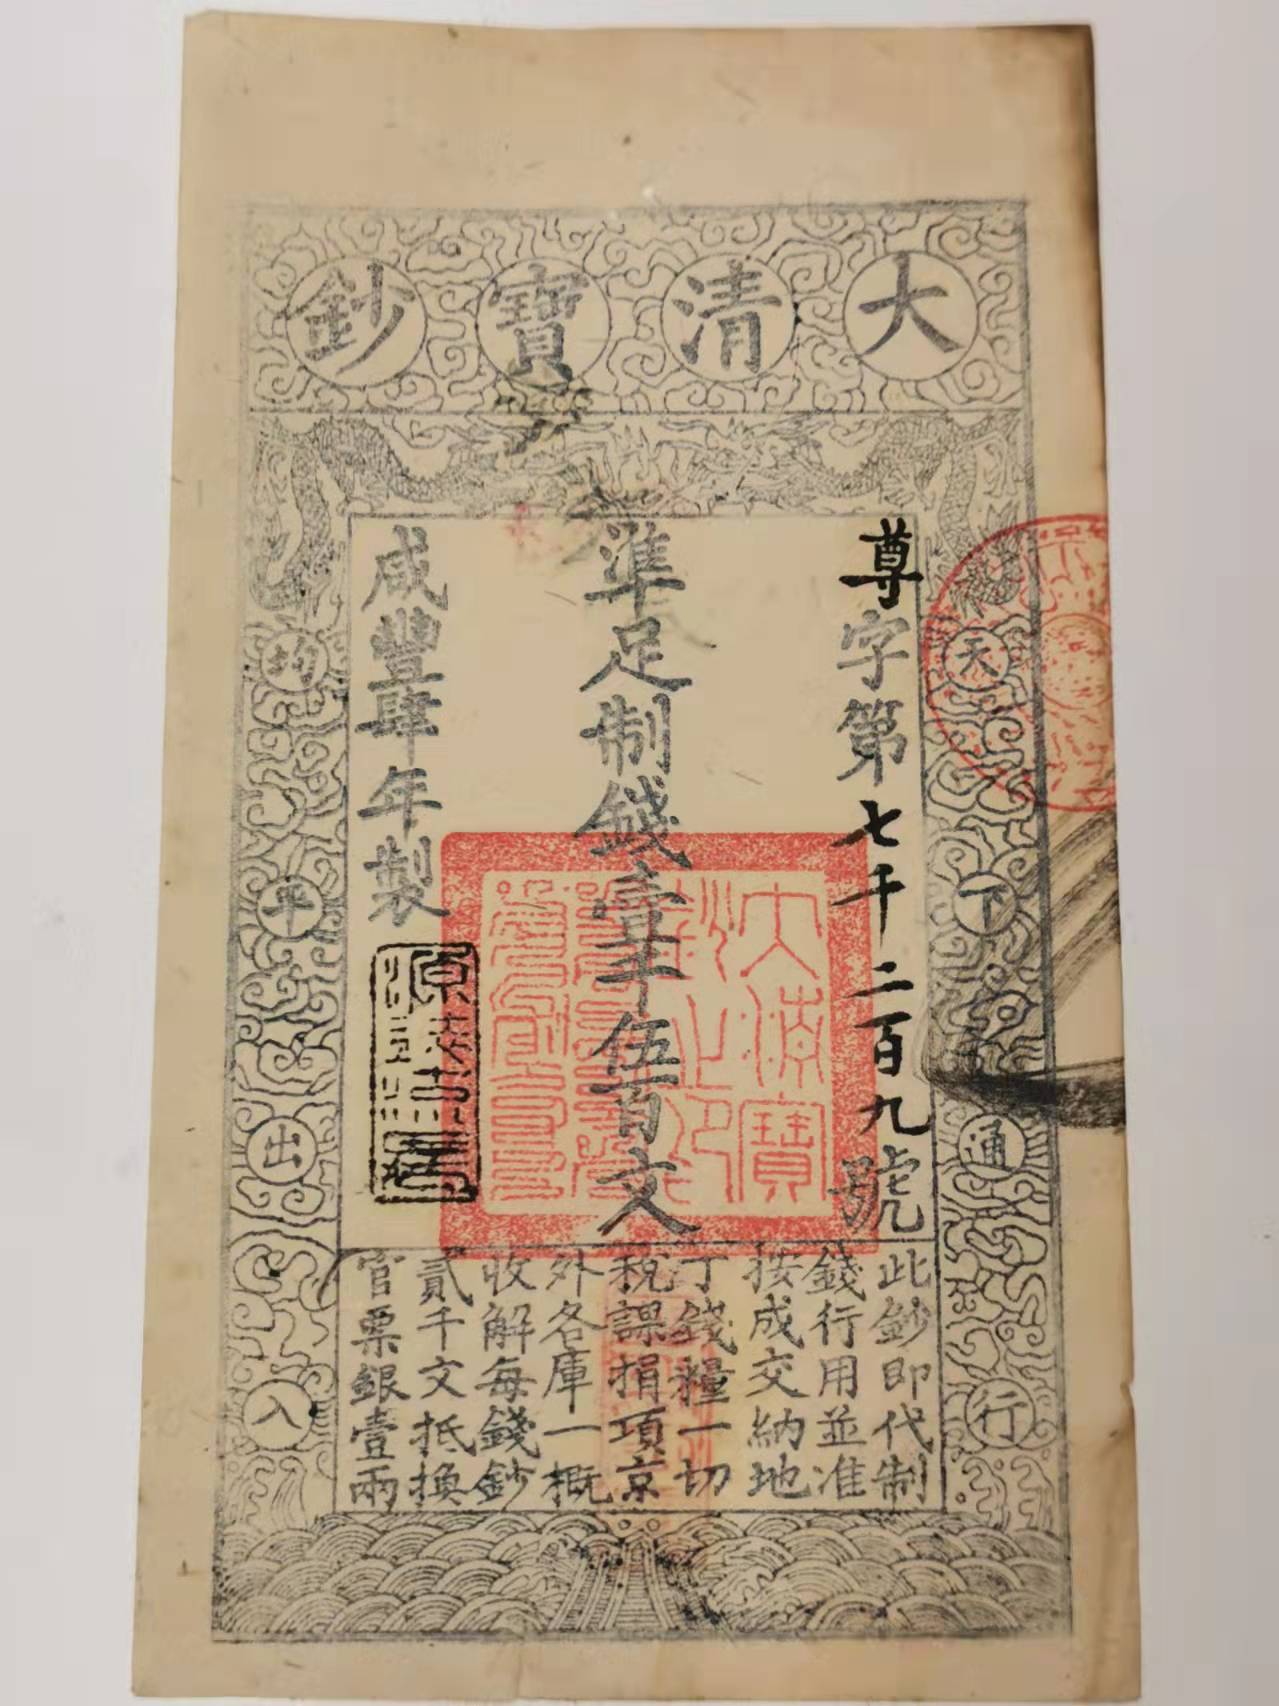 大清寶鈔
天下通行
均平出入
尊字第七千二百九號
準足制錢壹千伍百文
咸豐肆年製
此鈔即代制
錢行用並准
按成交納地
丁錢糧一切
稅課捐項京
外各庫一概
收解每錢鈔
貳千文抵換
官票銀壹兩
大清寶鈔之印